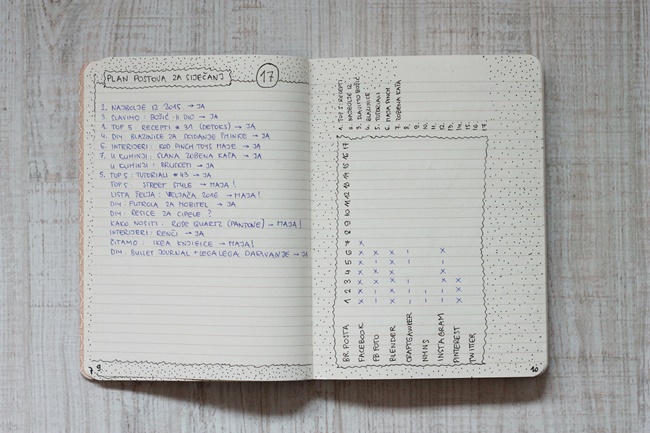 PLAN POSTOVA ZA SIJEČANJ
17
2. NAJBOLJE IZ 2015 → JA
3. SLAVIMO: BOŽIĆ II DIO → JA
1. TOP 5 RECEPTI #31 (DETOKS) → JA
4. DIY: BLAZINICE ZA SKIDANJE ŠMINKE → JA
6. INTERIJERI: KOD PINCH TOYS MAJE → JA
7. U KUHINJI: SLANA ZOBENA KAŠA → JA
U KUHINJI: BRUSKETI → JA
5. TOP 5 TUTORIALI #43 → JA
TOP 5 STREET STYLE → MAJA!
LISTA ŽELJA: VELJAČA 2016 → MAJA!
DIY: FUTROLA ZA MOBITEL → JA
DIY: RESICE ZA CIPELE?
KAKO NOSITI: ROSE QUARTZ (PANTONE) → MAJA!
INTERIJERI: RENČI → JA
ČITAMO: IKEA KNJIŽICE → MAJA!
DIY: BULLET JOURNAL + LEGALEGA DARIVANJE → JA
9
1. TOP 5 RECEPTI
2. NAJBOLJE IZ
3. SLAVIMO BOŽIĆ
4. BLAZINICE
5. TUTORIALI
6. MAJA PINCH
7. ZOBENA KAŠA
8.
9.
10.
11.
12.
13.
14.
15.
16.
17.
BR. POSTA 1 2 3 4 5 6 7 8 9 10 11 12 13 14 15 16 17
FACEBOOK x x x x x x x
FB FOTO - - x x x x
BLENDER x x x x x x
CRAFTGAWKER
NMNS
INSTAGRAM
PINTEREST
TWITTER
10